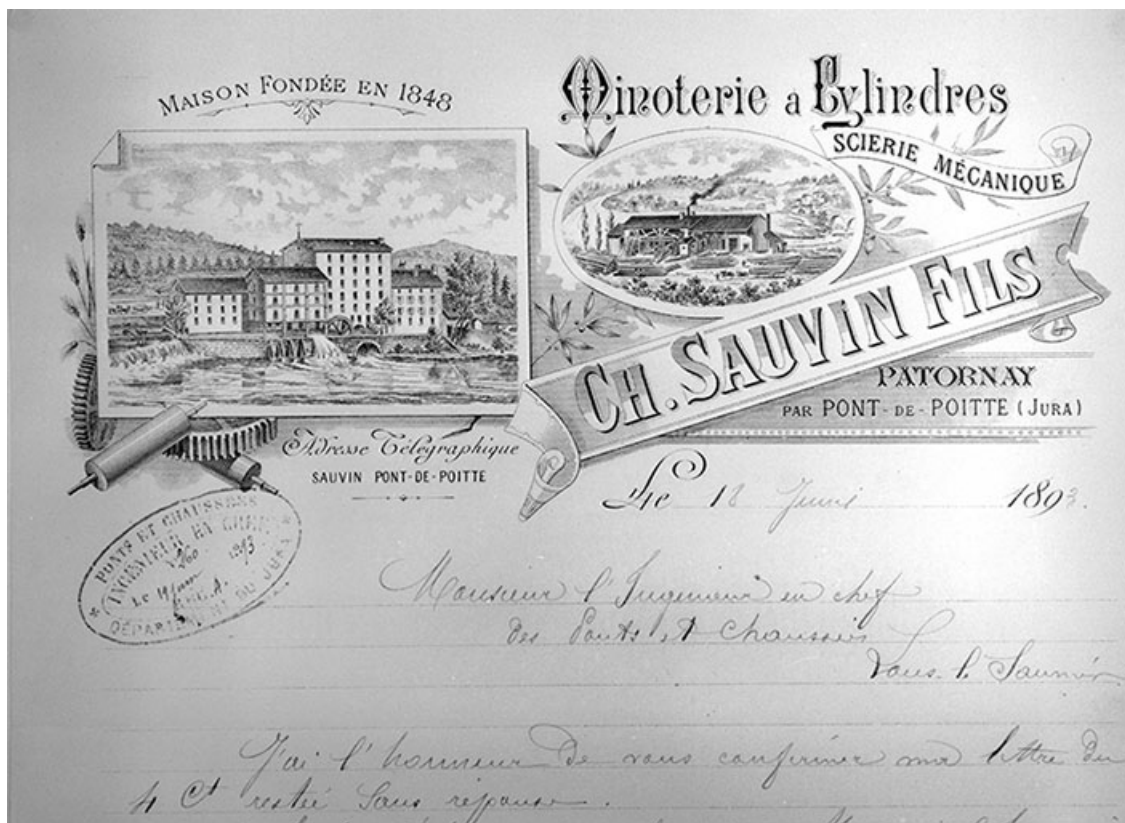 MAISON FONDÉE EN 1848
Minoterie a Cylindres
SCIERIE MÉCANIQUE
CH. SAUVIN FILS
PATORNAY
PAR PONT-DE-POITTE (JURA)
Adresse Télégraphique
SAUVIN PONT-DE-POITTE
Le 18 Juin 1893.
PONTS ET CHAUSSÉES
INGÉNIEUR EN CHEF
DÉPARTEMENT DU JURA
Monsieur l'Ingénieur en chef
des Ponts et Chaussées
Lons le Saunier
J'ai l'honneur de vous confirmer ma lettre du
4 Ct restée sans réponse.